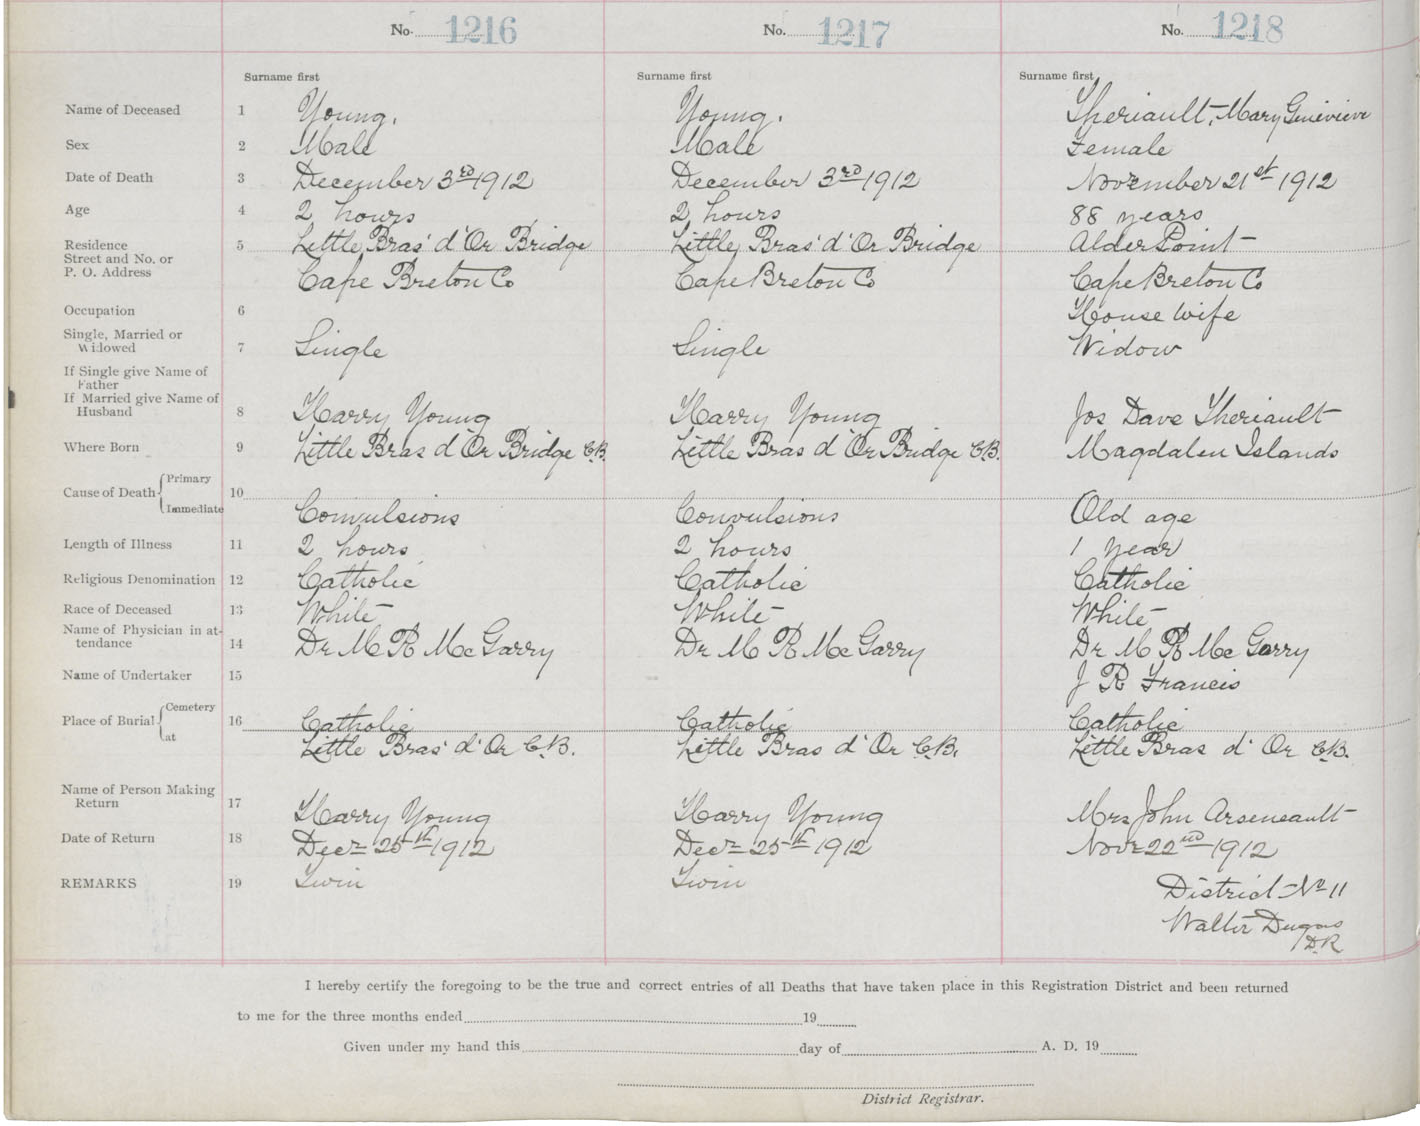 No. 1216 No. 1217 No. 1218
Surname first Surname first Surname first
Name of Deceased 1 Young. Young. Theriault, Mary Genevieve
Sex 2 Male Male Female
Date of Death 3 December 3rd 1912 December 3rd 1912 November 21st 1912
Age 4 2 hours 2 hours 88 years
Residence 5 Little Bras' d'Or Bridge Little Bras' d'Or Bridge Alder Point
Street and No. or
P. O. Address Cape Breton Co Cape Breton Co Cape Breton Co
Occupation 6 House wife
Single, Married or
Widowed 7 Single Single Widow
If Single give Name of
Father
If Married give Name of
Husband 8 Harry Young Harry Young Jos Dave Theriault
Where Born 9 Little Bras d'Or Bridge C.B. Little Bras d'Or Bridge C.B. Magdalen Islands
Primary
Cause of Death 10
Immediate Convulsions Convulsions Old age
Length of Illness 11 2 hours 2 hours 1 year
Religious Denomination 12 Catholic Catholic Catholic
Race of Deceased 13 White White White
Name of Physician in at-
tendance 14 Dr M R McGarry Dr M R McGarry Dr M R McGarry
Name of Undertaker 15 J R Francis
Cemetery
Place of Burial 16 Catholic Catholic Catholic
at Little Bras' d'Or C.B. Little Bras d'Or C.B. Little Bras d'Or C.B.
Name of Person Making
Return 17 Harry Young Harry Young Mrs John Arseneault
Date of Return 18 Decr 25th 1912 Decr 25th 1912 Novr 22nd 1912
REMARKS 19 Twin Twin District No 11
Walter Dugas
DR
I hereby certify the foregoing to be the true and correct entries of all Deaths that have taken place in this Registration District and been returned
to me for the three months ended 19
Given under my hand this day of A. D. 19
District Registrar.